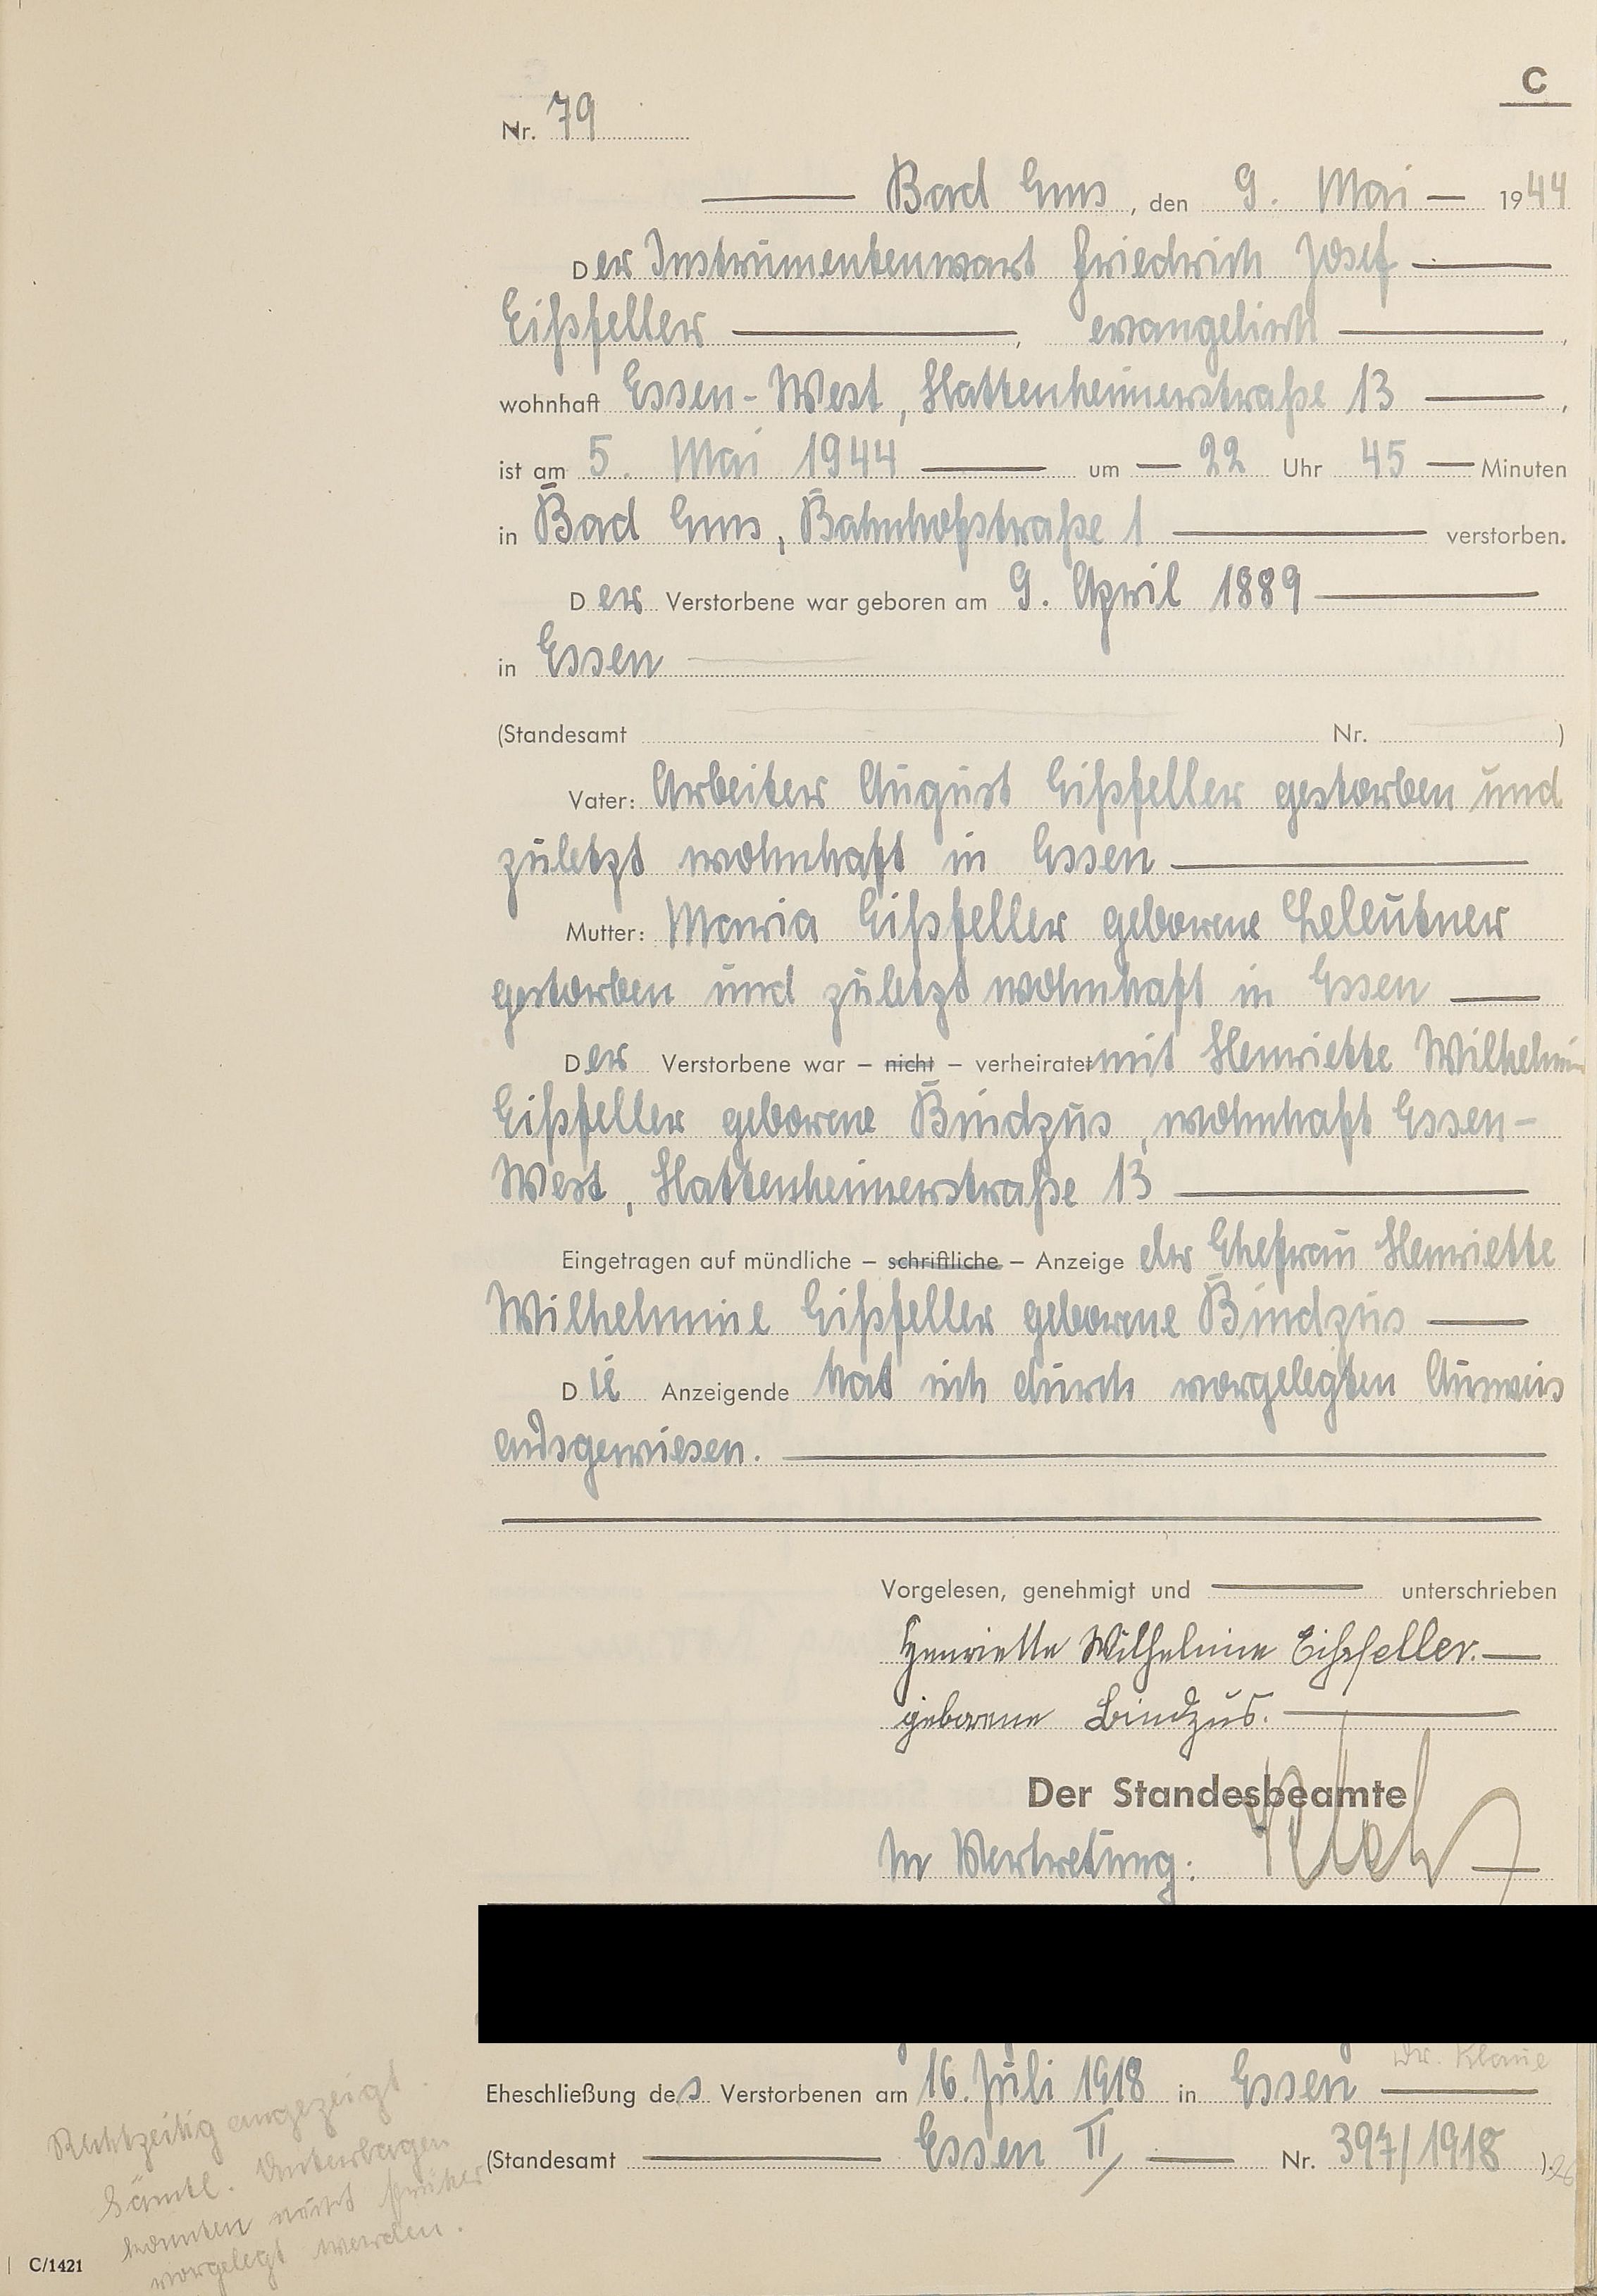 C
Nr. 79
Bad Ems, den 9. Mai 1944
Der Instrumentenwart Friedrich Josef
Eißfeller, evangelisch,
wohnhaft Essen-West, Hattenheimerstraße 13,
ist am 5. Mai 1944 um 22 Uhr 45 Minuten
in Bad Ems, Bahnhofstraße 1 verstorben.
Der Verstorbene war geboren am 9. April 1889
in Essen
(Standesamt Nr. )
Vater: Arbeiter August Eißfeller gestorben und
zuletzt wohnhaft in Essen
Mutter: Maria Eißfeller geborene
gestorben und zuletzt wohnhaft in Essen
Der Verstorbene war – nicht – verheiratet mit Henriette Wilhelmine
Eißfeller geborene Bindzus, wohnhaft Essen-
West, Hattenheimerstraße 13
Eingetragen auf mündliche – schriftliche – Anzeige der Ehefrau Henriette
Wilhelmine Eißfeller geborene Bindzus
Die Anzeigende hat sich durch vorgelegten Ausweis
ausgewiesen.
Vorgelesen, genehmigt und unterschrieben
Henriette Wilhelmine Eißfeller.
geborene Bindzus.
Der Standesbeamte
In Vertretung:
Dr. Klaue
Eheschließung des Verstorbenen am 16. Juli 1918 in Essen
(Standesamt Essen II Nr. 397/1918 ).
Rechtzeitig angezeigt.
Sämtl. Unterlagen
konnten nicht früher
vorgelegt werden.
C/1421